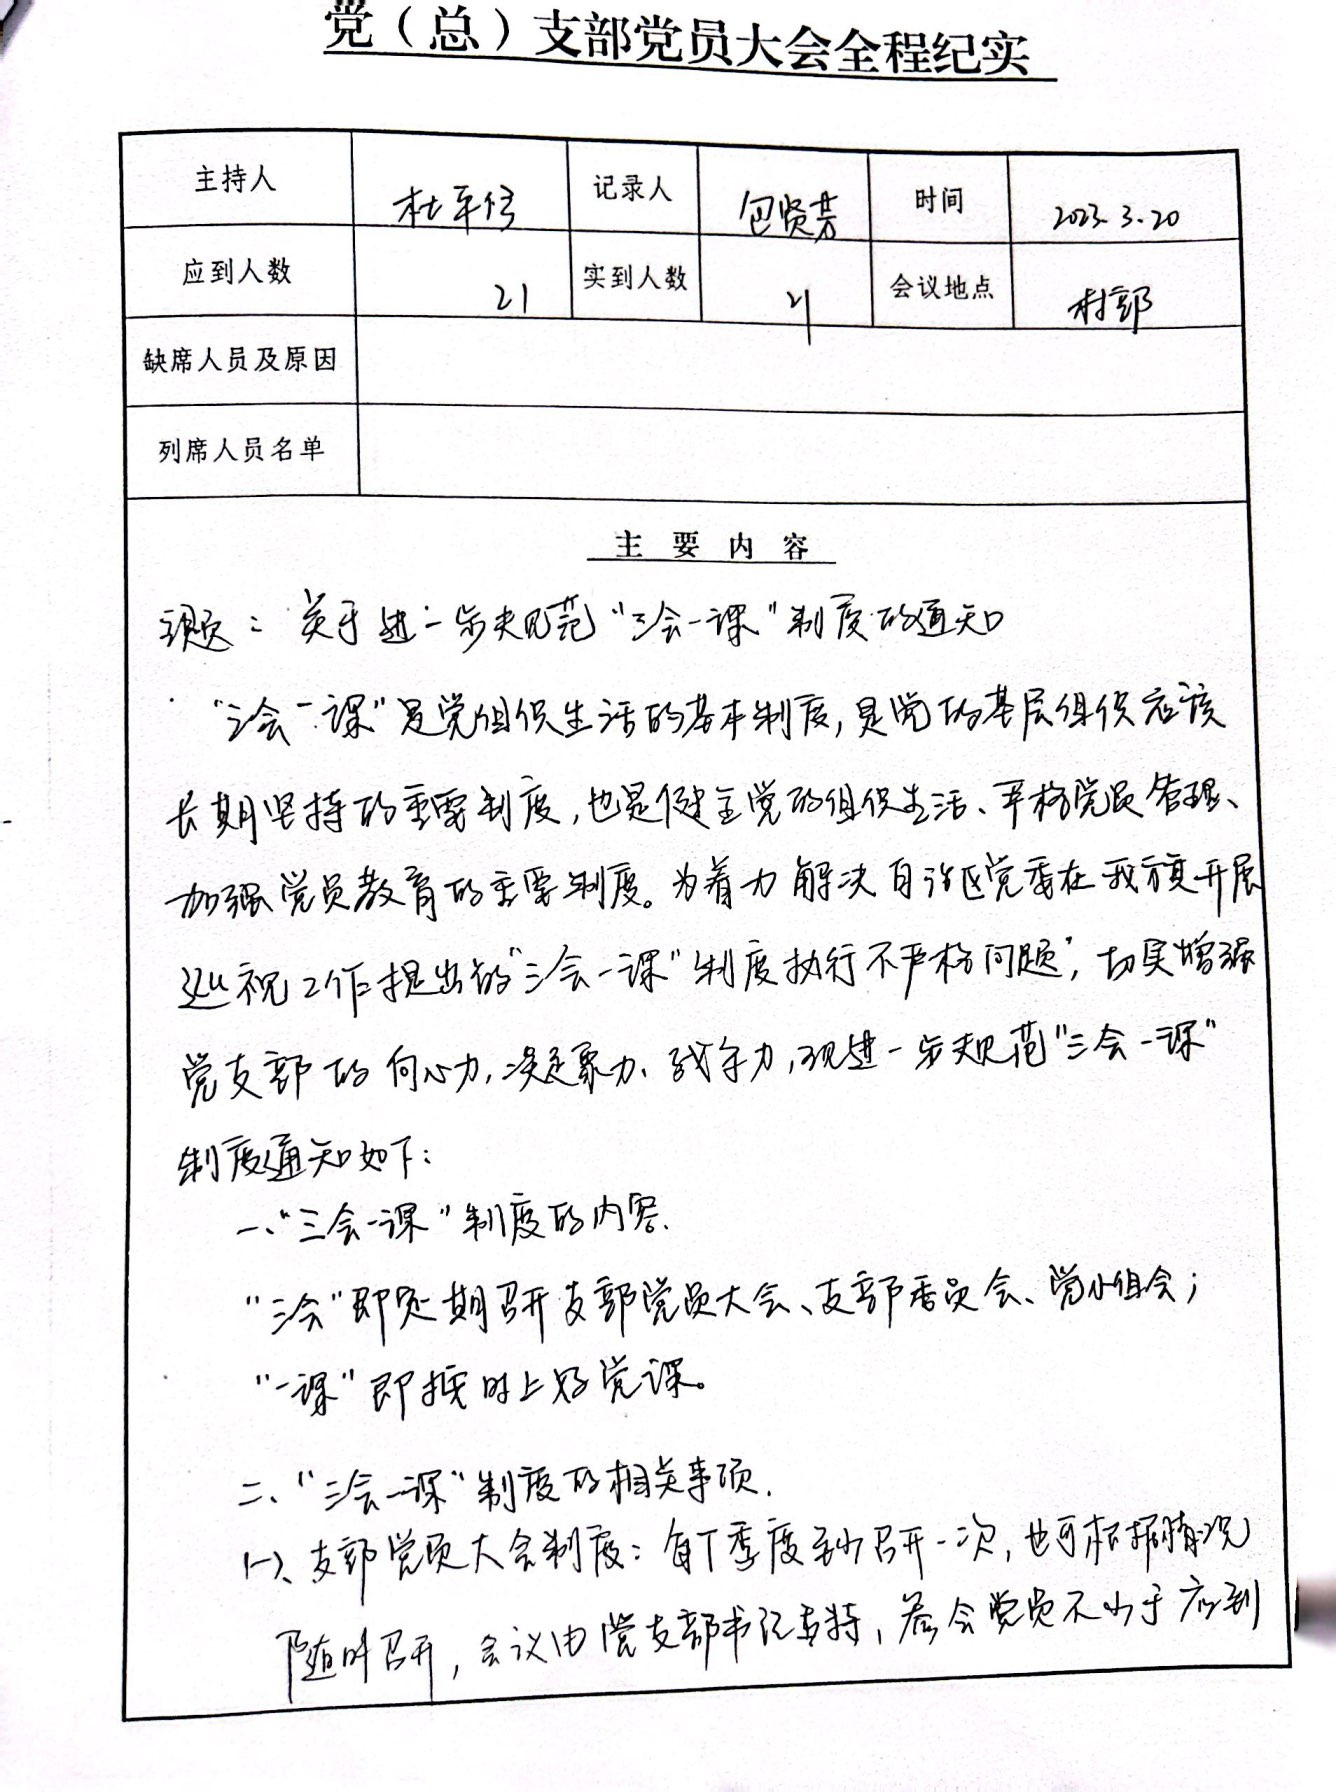 党（总）支部党员大会全程纪实
主持人 杜平修 记录人 包贤芳 时间 2023.3.20
应到人数 21 实到人数 21 会议地点 村部
缺席人员及原因
列席人员名单
主要内容
议题：关于进一步规范“三会一课”制度的通知
“三会一课”是党组织生活的基本制度，是党的基层组织应该
长期坚持的重要制度，也是健全党的组织生活、严格党员管理、
加强党员教育的重要制度。为着力解决自治区党委在我旗开展
巡视工作提出的“三会一课”制度执行不严格问题”，切实增强
党支部的向心力，凝聚力、战斗力，现进一步规范“三会一课”
制度通知如下：
一、“三会一课”制度的内容.
“三会”即定期召开支部党员大会、支部委员会、党小组会；
“一课”即按时上好党课。
二、“三会一课”制度的相关事项.
(一)、支部党员大会制度：每个季度至少召开一次，也可根据情况
随时召开，会议由党支部书记主持，参会党员不少于应到